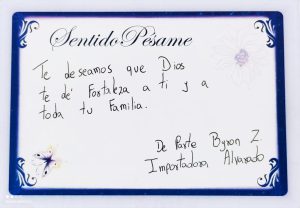 Sentido Pésame
Te deseamos que Dios
te de' Fortaleza a ti y a
toda tu Familia.
De Parte Byron Z.
Importadora Alvarado